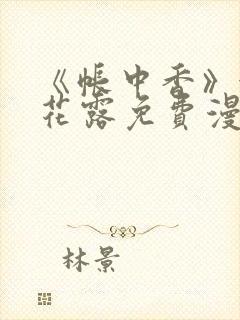 《帐中香》
花露免費漫
林景